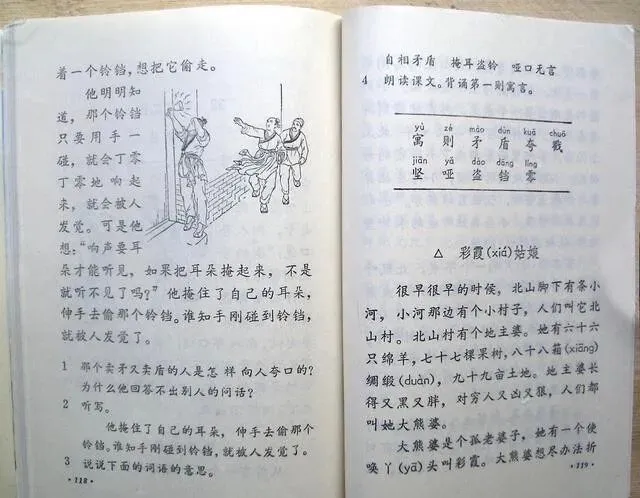 着一个铃铛，想把它偷走。
他明明知
道，那个铃铛
只要用手一
碰，就会丁零
丁零地响起
来，就会被人
发觉。可是他
想：“响声要耳
朵才能听见，如果把耳朵掩起来，不是
就听不见了吗？”他掩住了自己的耳朵，
伸手去偷那个铃铛。谁知手刚碰到铃铛，
就被人发觉了。
1 那个卖矛又卖盾的人是怎样向人夸口的？
为什么他回答不出别人的问话？
2 听写。
他掩住了自己的耳朵，伸手去偷那个
铃铛。谁知手刚碰到铃铛，就被人发觉了。
3 说说下面的词语的意思。
·118·
自相矛盾 掩耳盗铃 哑口无言
4 朗读课文。背诵第一则寓言。
yù zé máo dùn kuā chuō
寓 则 矛 盾 夸 戳
jiān yǎ dào dāng líng
坚 哑 盗 铛 零
△ 彩霞(xiá)姑娘
很早很早的时候，北山脚下有条小
河，小河那边有个小村子，人们叫它北
山村。北山村有个地主婆。她有六十六
只绵羊，七十七棵果树，八十八箱(xiāng)
绸缎(duàn)，九十九亩土地。地主婆长
得又黑又胖，对穷人又凶又狠，人们都
叫她大熊婆。
大熊婆是个孤老婆子，她有一个使
唤丫(yā)头叫彩霞。大熊婆想尽办法折
·119·